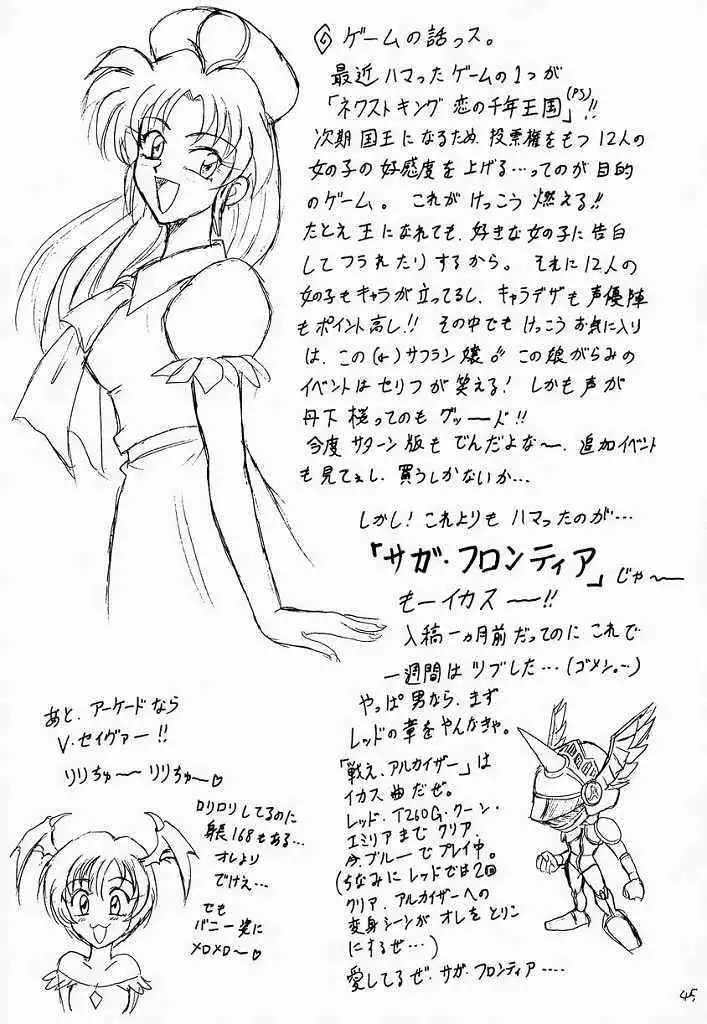 ゲームの話っス。
最近ハマったゲームの1つが
「ネクストキング 恋の千年王国」(PS)!!
次期国王になるため、投票権をもつ12人の
女の子の好感度を上げる…ってのが目的
のゲーム。 これがけっこう燃える!!
たとえ王になれても、好きな女の子に告白
してフラれたりするから。 それに12人の
女の子もキャラが立ってるし、キャラデザも声優陣
もポイント高し!! その中でもけっこうお気に入り
は、この(←)サフラン嬢!! この娘がらみの
イベントはセリフが笑える! しかも声が
丹下桜ってのもグッ――ド!!
今度サターン版もでんだよな〜、追加イベント
も見てぇし、買うしかないか…
しかし! これよりもハマったのが…
「サガ・フロンティア」じゃ〜
もーイカス――!!
入稿一ヵ月前だってのにこれで
一週間はツブした…(ゴメン。…)
やっぱ男なら、まず
レッドの章をやんなきゃ。
「戦え、アルカイザー」は
イカス曲だぜ。
レッド、T260G、クーン、
エミリアまでクリア、
今、ブルーでプレイ中。
(ちなみにレッドでは2回
クリア、アルカイザーへの
変身シーンがオレをとりこ
にするぜ…)
愛してるぜ、サガ・フロンティア…
あと、アーケードなら
V.セイヴァー!!
リリちゅ〜 リリちゅ〜♡
ロリロリしてるのに
身長168もある…
オレより
でけえ…
でも
バニー姿に
メロメロ〜♡
45.